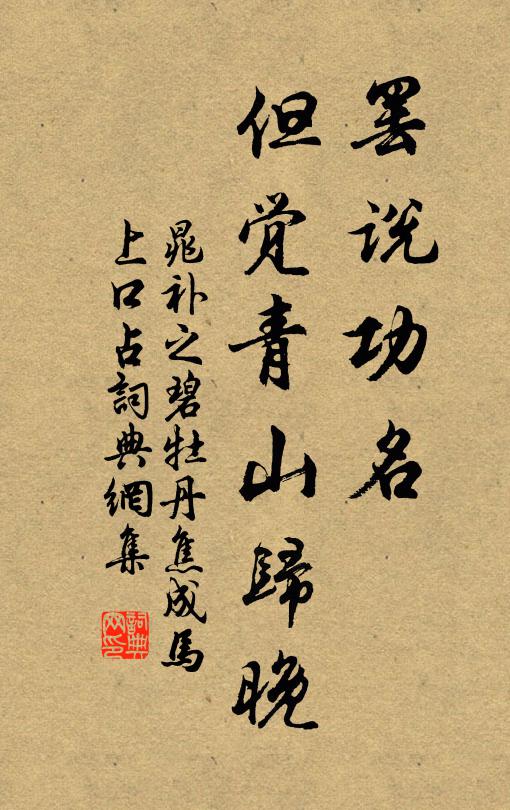 罢说功名
但觉青山歸晚
晁补之碧牡丹焦成馬
上口占詞典網集
詞典網印